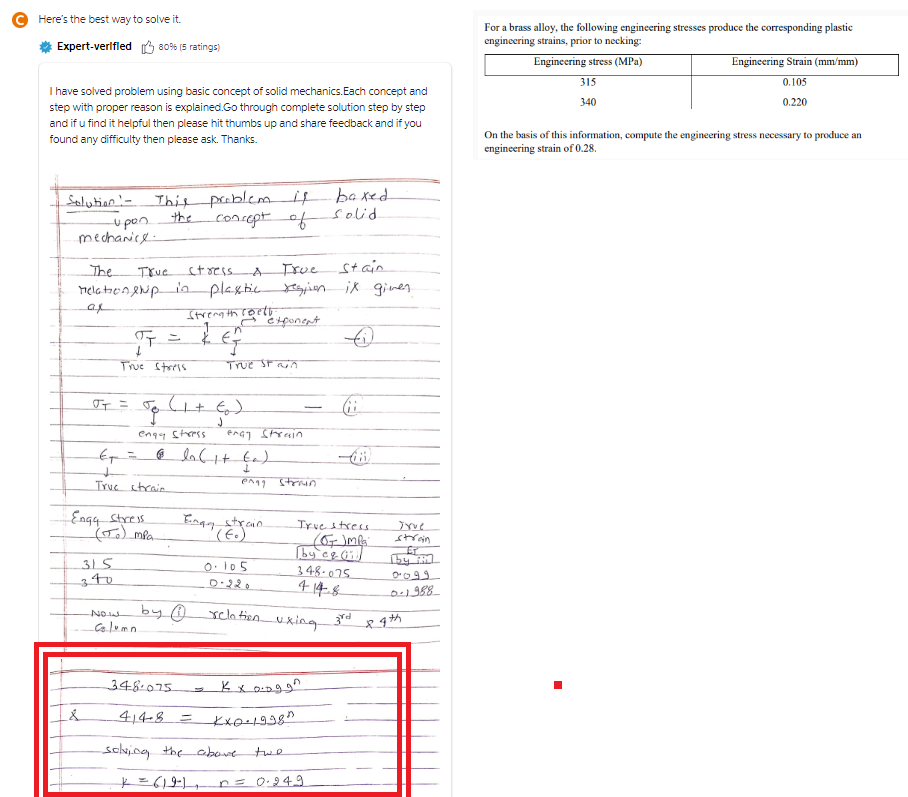 Here's the best way to solve it.
Expert-verified 80% (5 ratings)
I have solved problem using basic concept of solid mechanics.Each concept and
step with proper reason is explained.Go through complete solution step by step
and if u find it helpful then please hit thumbs up and share feedback and if you
found any difficulty then please ask. Thanks.
Solution:- This problem is based
upon the concept of solid
mechanics.
The True stress & True stain
relationship in plastic region is given
as
Strength coeff.
exponent
σT = k εT^n — (i)
True Stress True Strain
σT = σo (1 + εo) — (ii)
engg stress engg strain
εT = ln(1 + εo) — (iii)
True strain engg strain
Engg stress Engg strain True stress True
(σo) mPa (εo) (σT) mPa strain
by eq (ii) εT
by iii
315 0.105 348.075 0.099
340 0.220 414.8 0.1988
Now by (i) relation using 3rd & 4th
Column
348.075 = K x 0.099^n
& 414.8 = K x 0.1998^n
solving the above two
n = 0.249
For a brass alloy, the following engineering stresses produce the corresponding plastic
engineering strains, prior to necking:
Engineering stress (MPa) Engineering Strain (mm/mm)
315 0.105
340 0.220
On the basis of this information, compute the engineering stress necessary to produce an
engineering strain of 0.28.